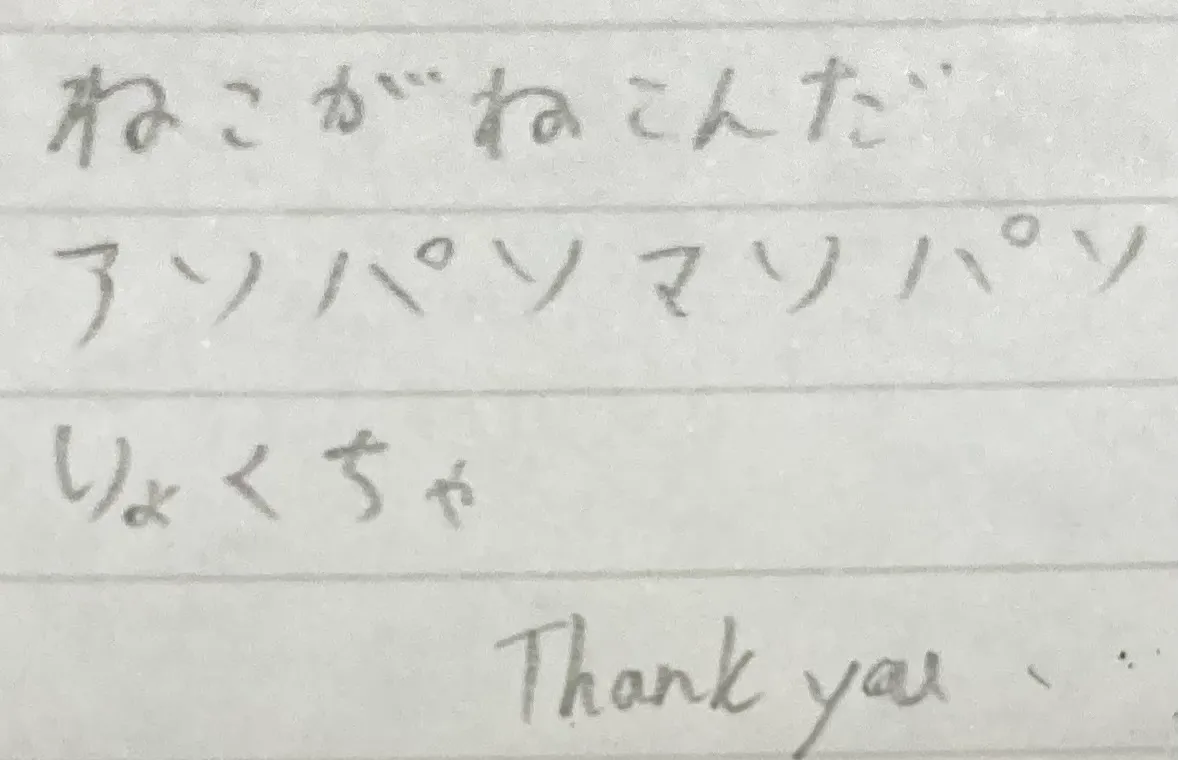 ねこがねこんだ
アソパソマソパソ
りょくちゃ
Thank you